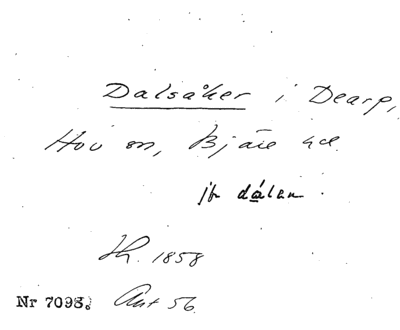 Dalsåker i Dearp,
Hov sn, Bjäre hd.
jfr dálan.
Th. 1858
Nr 7098. Ant 56